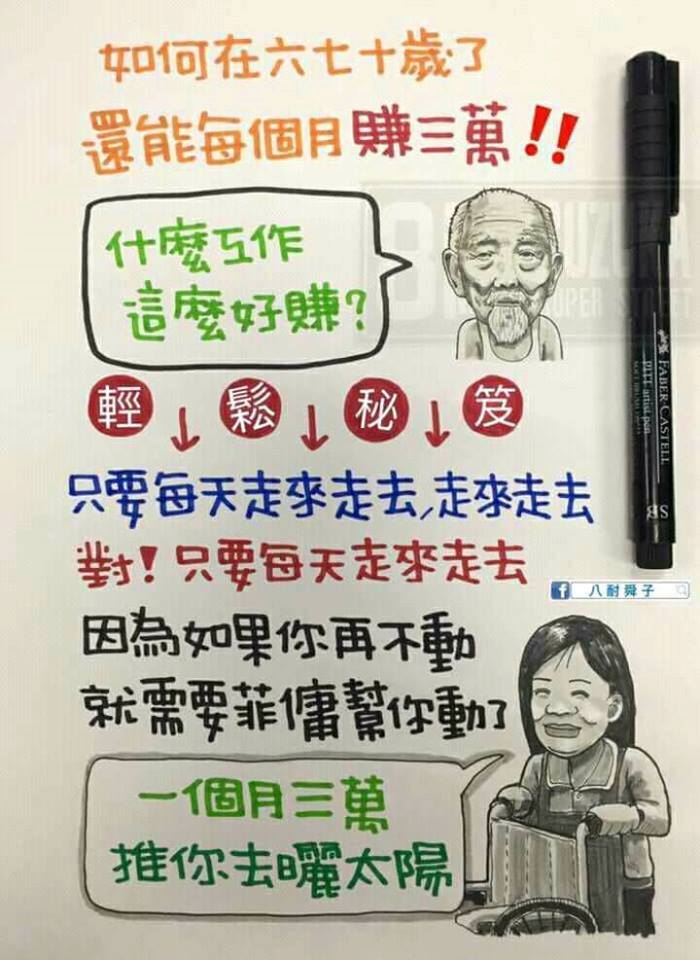 如何在六七十歲了
還能每個月賺三萬!!
什麼工作
這麼好賺?
輕鬆秘笈
只要每天走來走去,走來走去
對!只要每天走來走去
因為如果你再不動
就需要菲傭幫你動了
一個月三萬
推你去曬太陽
八耐舜子
FABER-CASTELL
PITT artist pen
SB